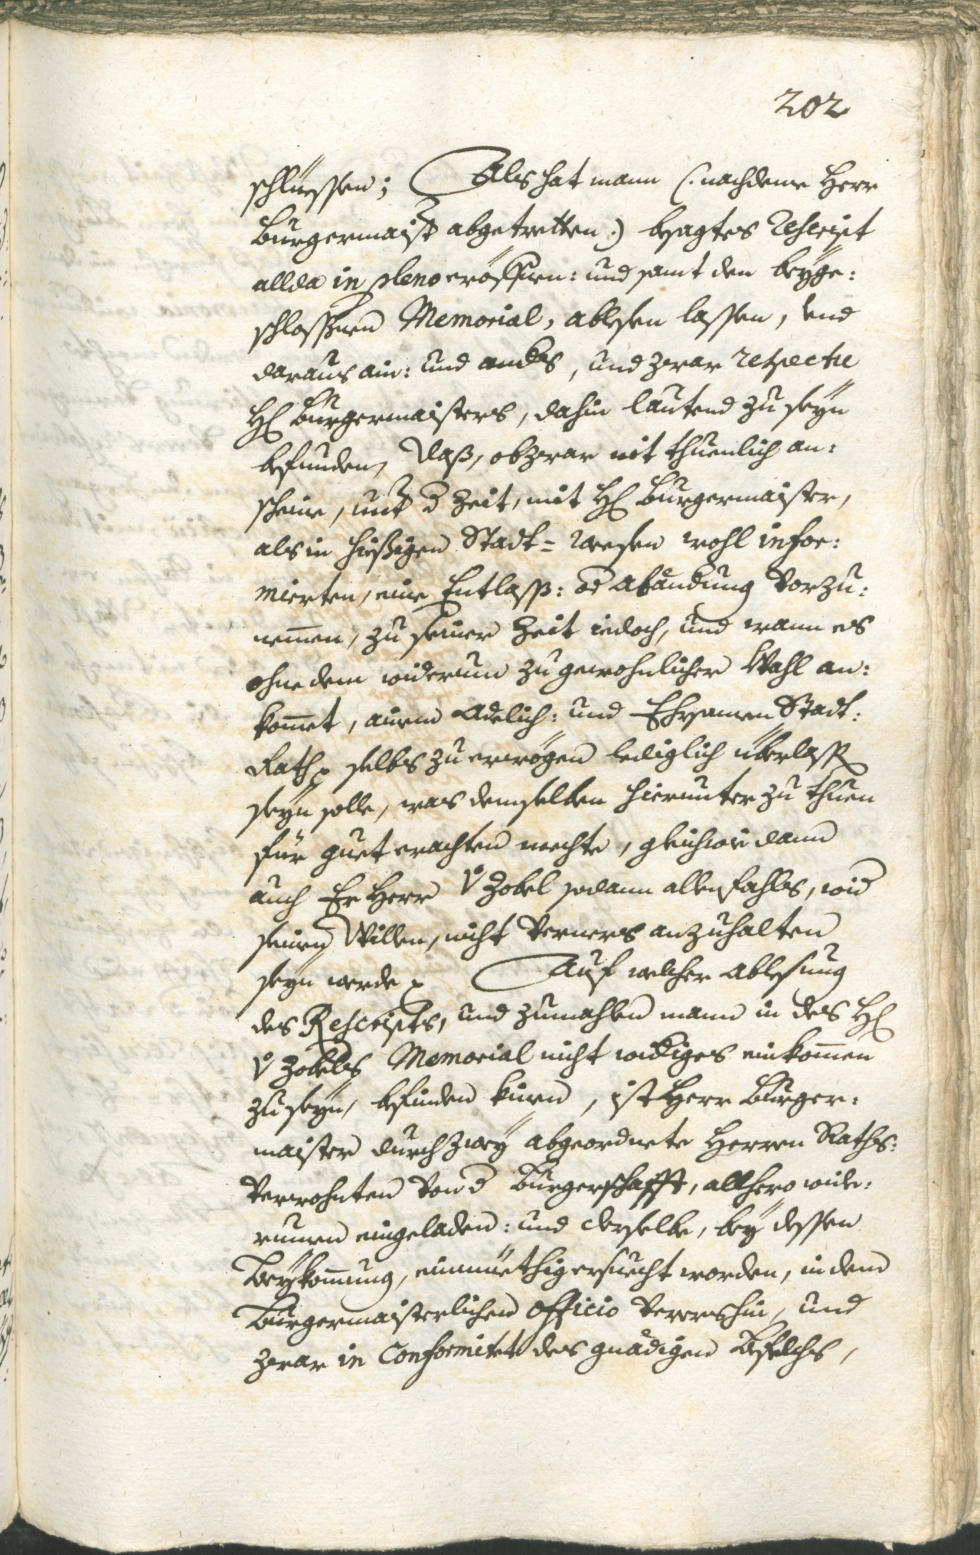 202
schlüessen; Als hat mann (: nachdeme Herr
Burgermaistr abgetretten :) besagtes Rescript
allda in pleno eröffnen: und samt den beyge:
schlossnen Memorial, ablesen lassen, und
daraus ain: und anders, und zwar respectu
H: Burgermaisters, dahin lautend zu seyn
befunden, daß, obzwar nit thuenlich an:
scheine, unter d Zeit, mit H: Burgermaister,
als in hiesigen Stadt=Weesen wohl infor:
mierten, eine Entlass: od Abändung vorzu:
nemmen, zu seiner Zeit iedoch, und wann es
ohne dem widerum zu gewohnlicher Wahl an:
kommet, ainem Adelich: und Ehrsamen Stadt:
Rath selbs zu erwögen lediglich überlassen
seyn solle, was demselben hierunter zu thuen
für guet erachten mechte, gleichwie dann
auch Er Herr v Zobel sodann allenfahls, wid
seinen Willen, nicht verners anzuhalten
seyn werde. Auf welcher Ablesung
des Rescripts, und zumahlen mann in des H:
v Zobels Memorial nicht widriges einkommen
zu seyn, befinden kinen, ist Herr Burger:
maister durch zwey abgeordnete Herren Raths:
Verwohnten von d Burgerschafft, allhero wide:
rumen eingeladen: und derselbe, bey dessen
Beykommung, einmüethig ersuecht worden, in dem
Burgermaisterlichen officio verershin, und
zwar in Conformitet des gnädigen Befelchs,